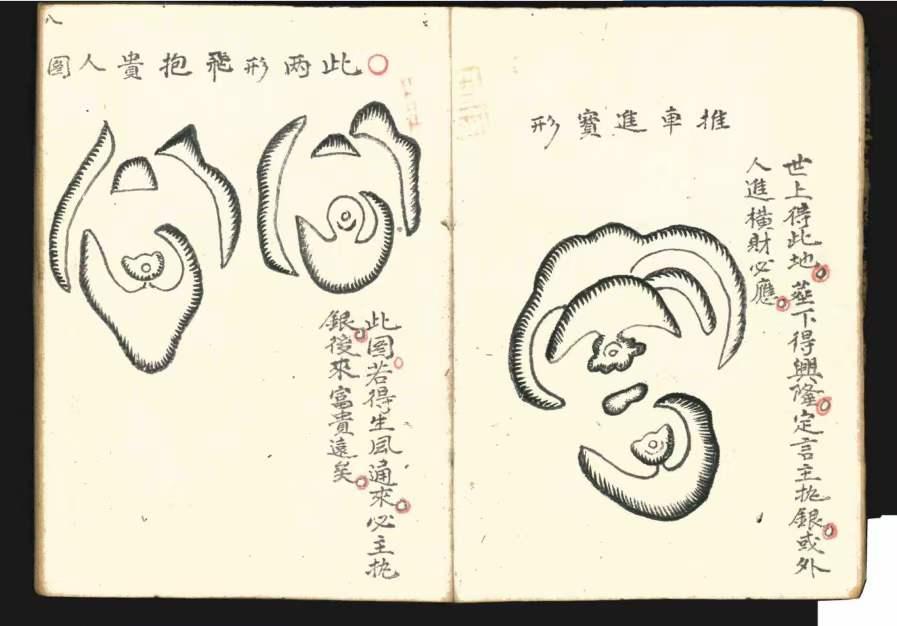 推車進寳形
世上得此地。塟下得興隆。定言主銀。或外
人進橫財必應。
○此两形飛抱貴人圖
此图。若得生風通來。必主
銀。後來富貴遠矣。
八